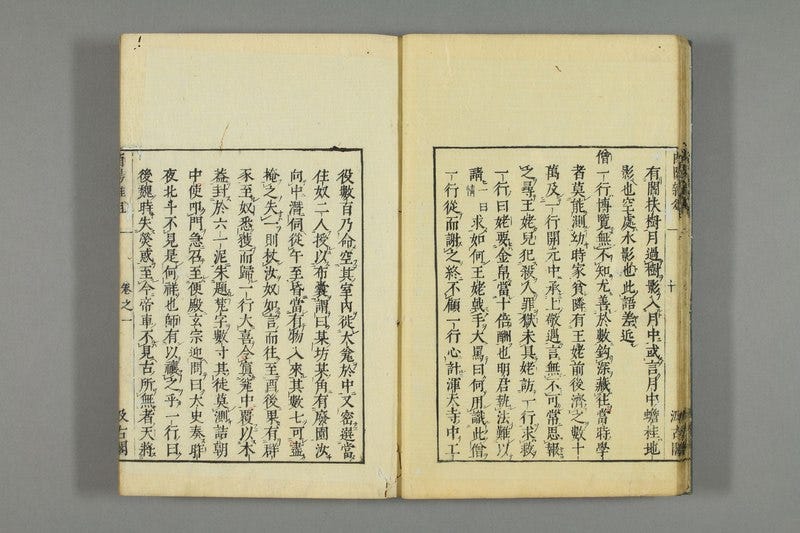 有閻扶樹月過樹影入月中或言月中蟾桂地
影也空處水影也此語差近
僧一行博覽無不知尤善於數鈎深藏往當時學
者莫能測幼時家貧隣有王姥前後濟之數十
萬及一行開元中承上敬遇言無不可常思報
之尋王姥兒犯殺人罪獄未具姥訪一行求救
一行曰姥要金帛當十倍酬也明君執法難以
請一曰情求如何王姥戟手大罵曰何用識此僧
一行從而謝之終不顧一行心計渾天寺中工
役數百乃命空其室內徙大瓮於中又密選常
住奴二人授以布囊謂曰某坊某角有廢園汝
向中潛伺從午至昏當有物入來其數七可盡
掩之失一則杖汝奴如言而往至酉後果有群
豕至奴悉獲而歸一行大喜令寘瓮中覆以木
蓋封於六一泥朱題梵字數寸其徒莫測詰朝
中使叩門急召至便殿玄宗迎問曰太史奏昨
夜北斗不見是何祥也師有以禳之乎一行曰
後魏時失熒惑至今帝車不見古所無者天將
卷之一
汲古閣